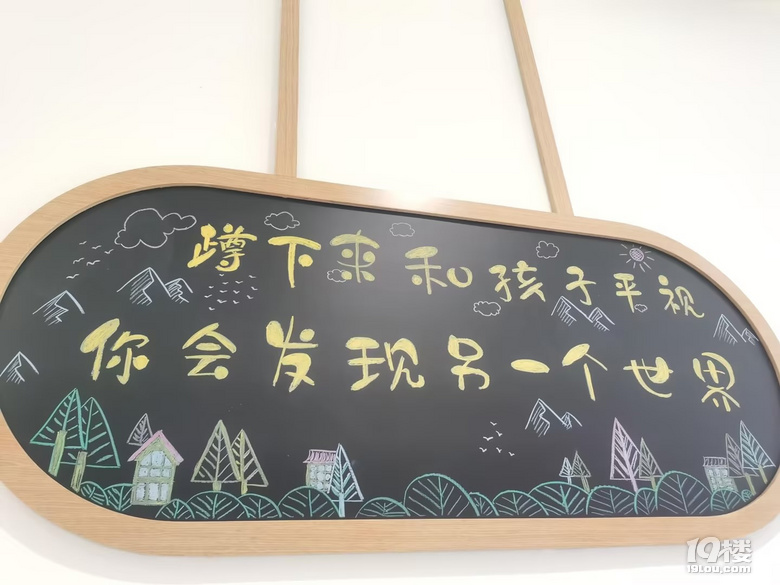 蹲下来和孩子平视
你会发现另一个世界
19楼
19lou.com